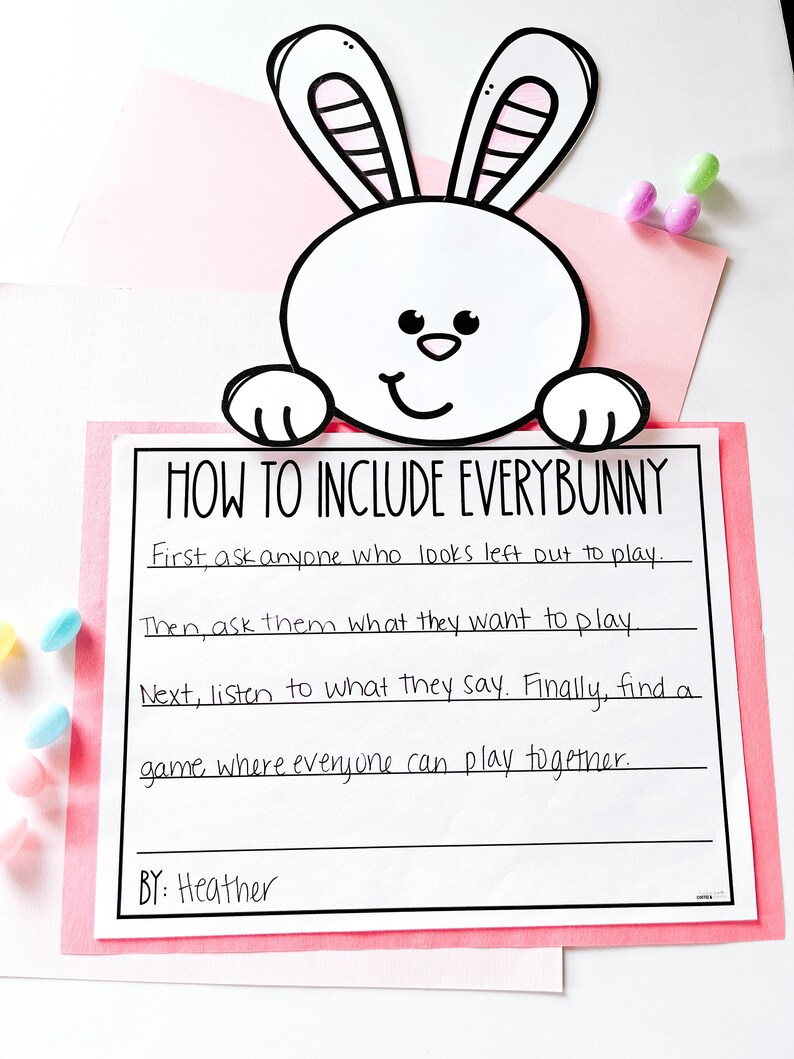 HOW TO INCLUDE EVERYBUNNY
First, ask anyone who looks left out to play.
Then, ask them what they want to play.
Next, listen to what they say. Finally, find a
game where everyone can play together.
BY: Heather
COFFEE &